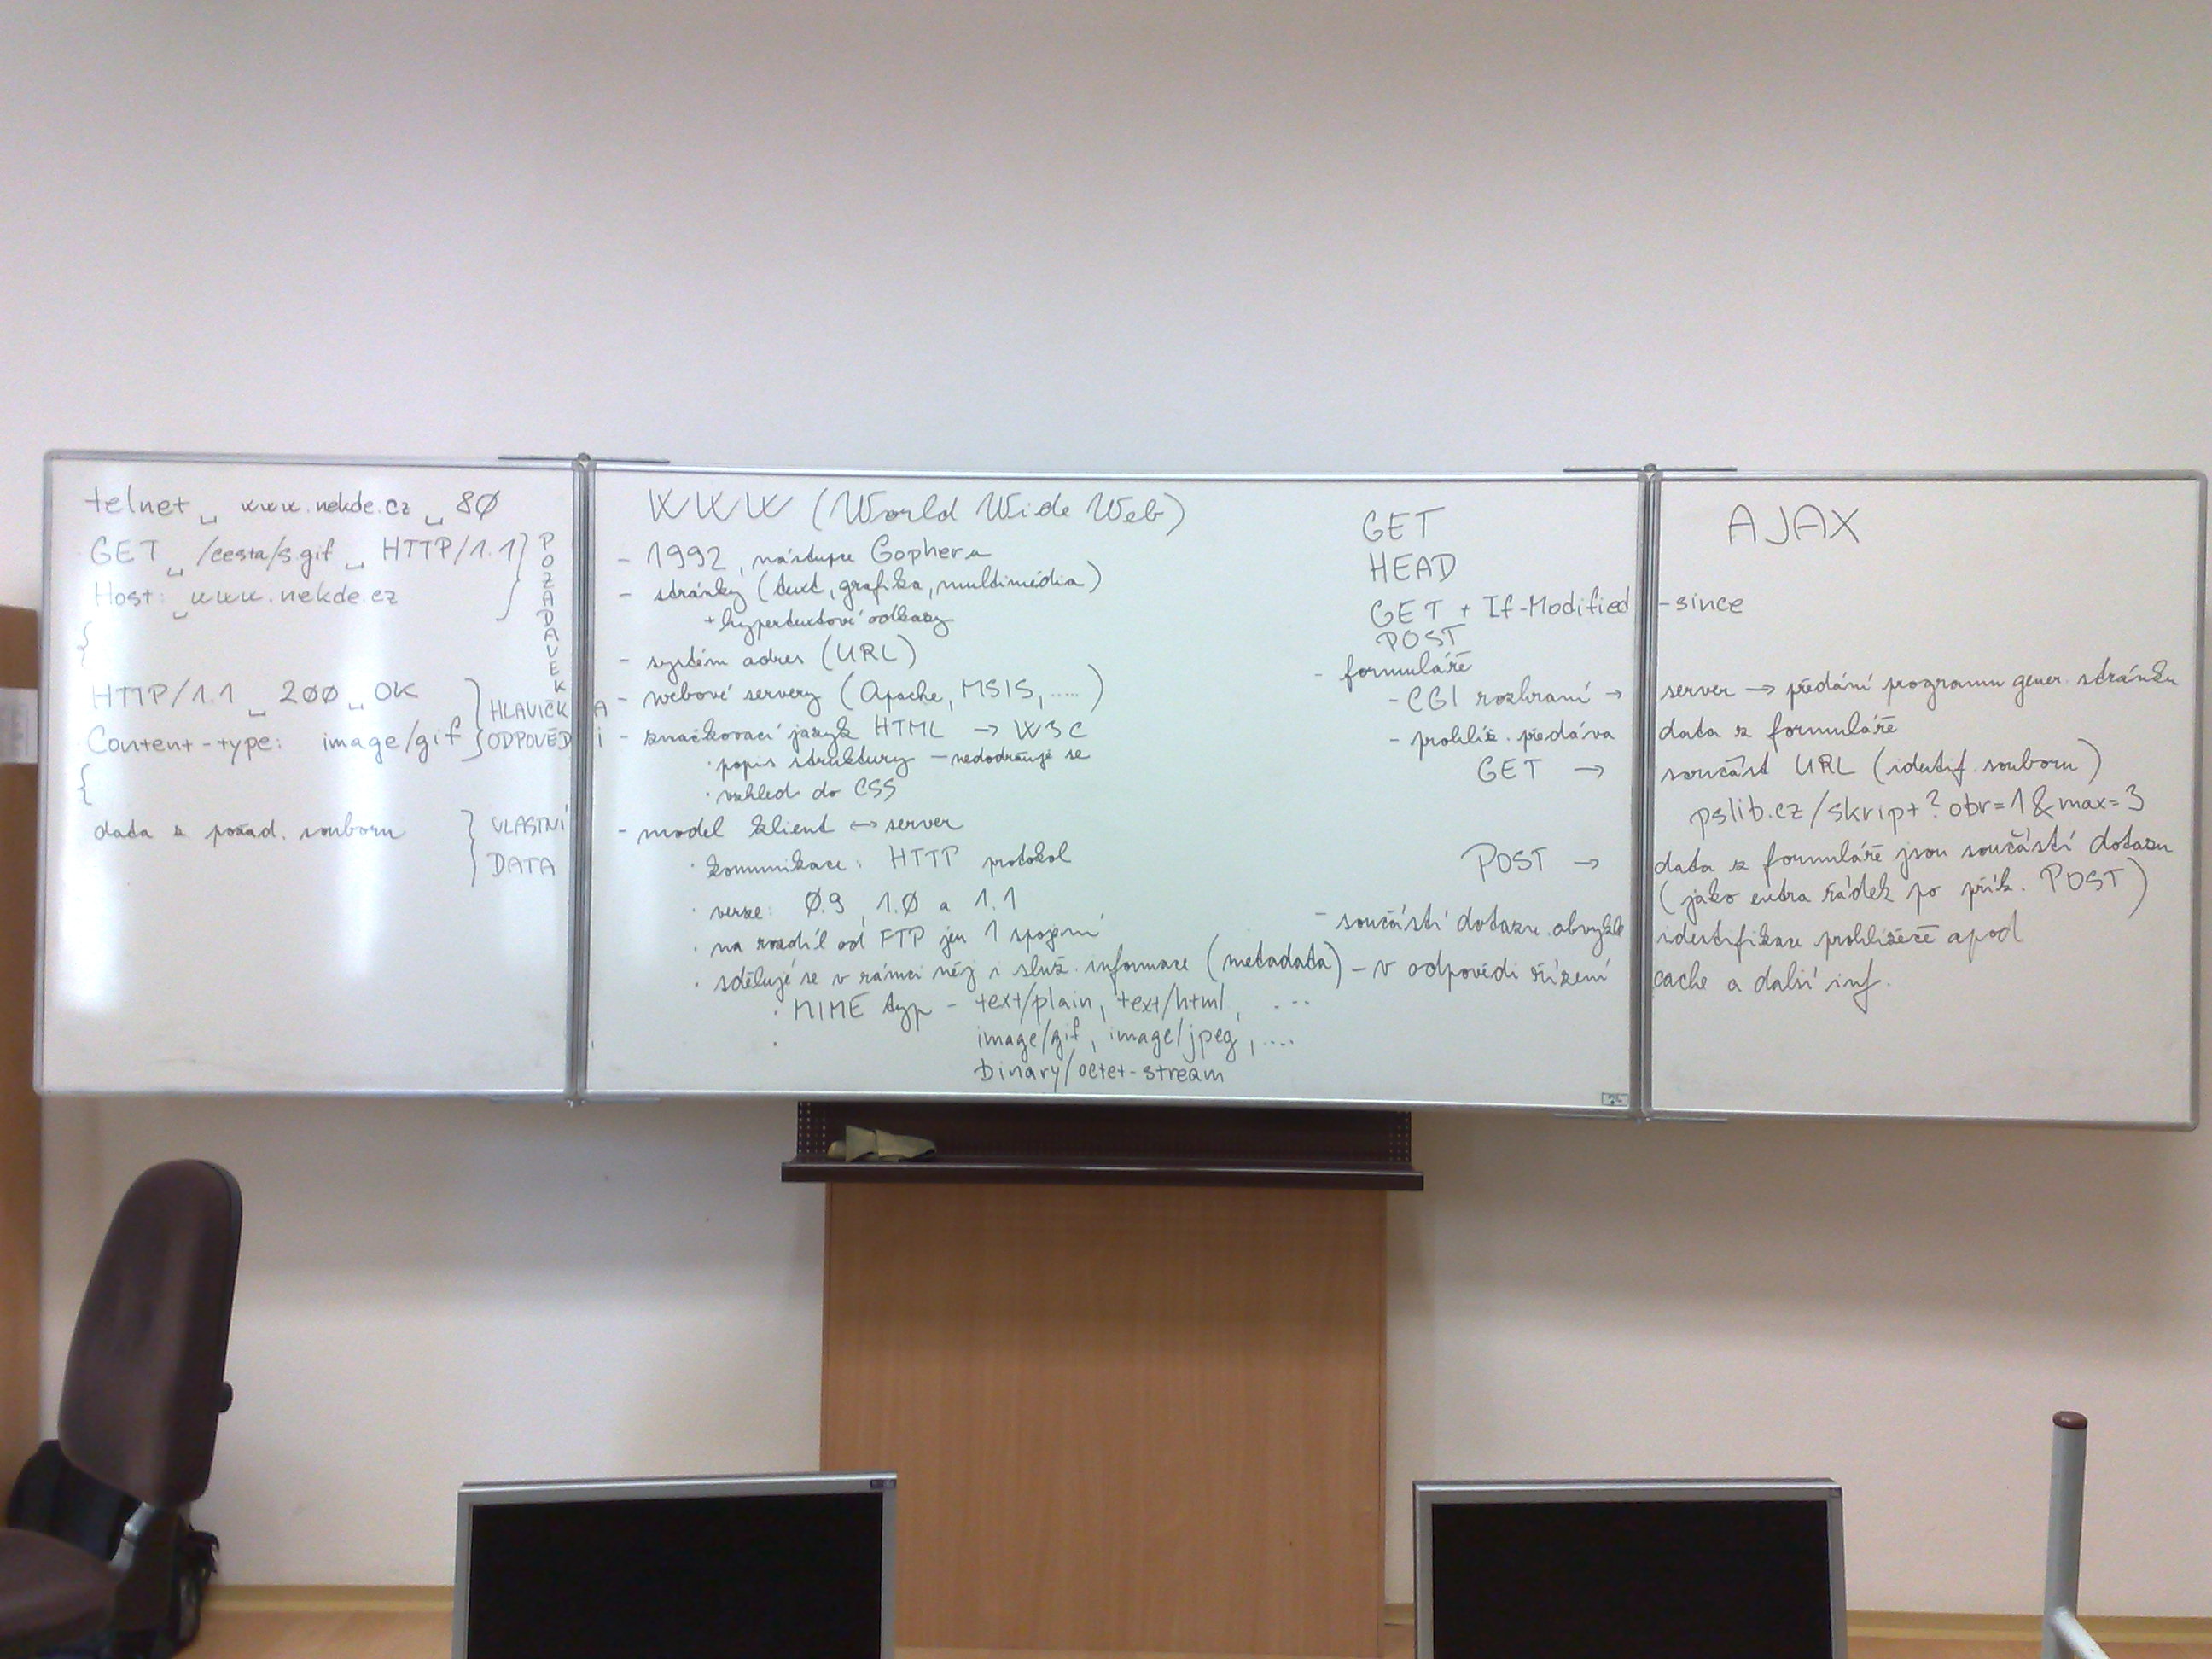 telnet ␣ www.nekde.cz ␣ 80
GET ␣ /cesta/s.gif ␣ HTTP/1.1
Host: ␣ www.nekde.cz
POŽADAVEK
{
HTTP/1.1 ␣ 200 ␣ OK
Content-type: image/gif
HLAVIČKA
ODPOVĚDI
{
data z požad. souboru
VLASTNÍ
DATA
WWW (World Wide Web)
- 1992, nástupce Gophera
- stránky (text, grafika, multimédia)
+ hypertextové odkazy
- systém adres (URL)
- webové servery (Apache, MSIS, .....)
- značkovací jazyk HTML → W3C
· popis struktury – nedodržuje se
· vzhled do CSS
- model klient ↔ server
· komunikace: HTTP protokol
· verze: 0.9, 1.0 a 1.1
· na rozdíl od FTP jen 1 spojení
· sděluje se v rámci něj i služ. informace (metadata)
· MIME typ - text/plain, text/html, ....
image/gif, image/jpeg, ....
binary/octet-stream
GET
HEAD
GET + If-Modified-since
POST
- formuláře
- CGI rozhraní → server → předání programu gener. stránku
- prohlíž. předává data z formuláře
GET → součást URL (identif. souboru)
pslib.cz/skript?obr=1&max=3
POST → data z formuláře jsou součástí dotazu
(jako extra řádek po přík. POST)
- součástí dotazu obvykle identifikace prohlížeče apod
– v odpovědi řízení cache a další inf.
AJAX